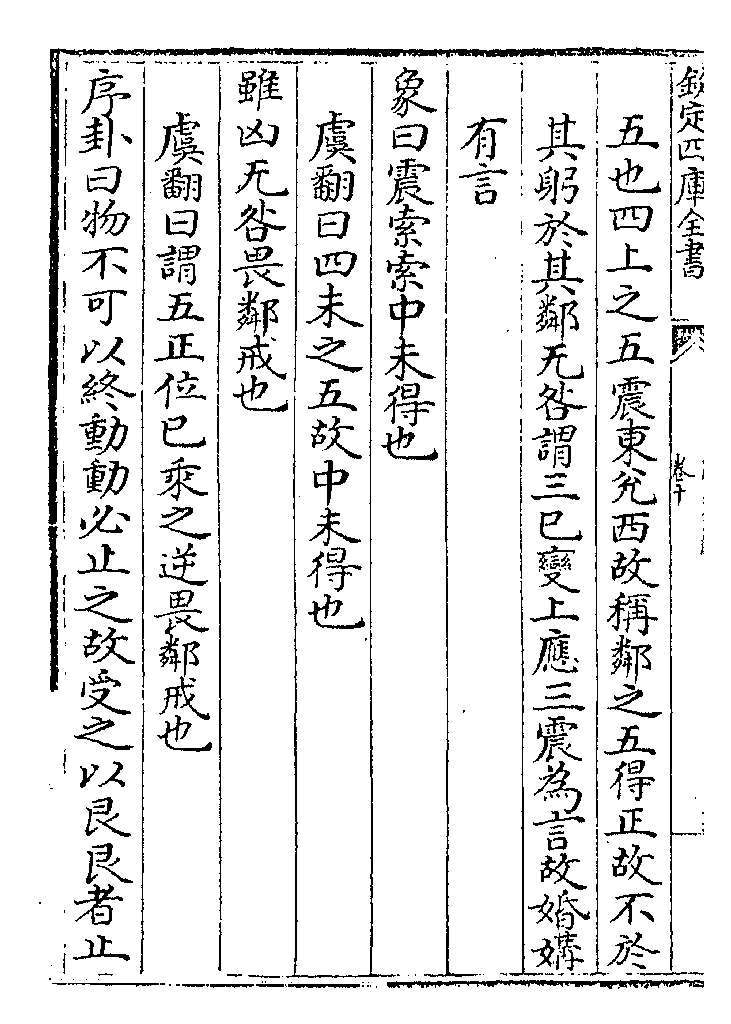 欽定四庫全書
卷十
五也四上之五震東兊西故稱鄰之五得正故不於
其躬於其鄰无咎謂三已變上應三震為言故婚媾
有言
象曰震索索中未得也
虞翻曰四未之五故中未得也
雖凶无咎畏鄰戒也
虞翻曰謂五正位已乘之逆畏鄰戒也
序卦曰物不可以終動動必止之故受之以艮艮者止